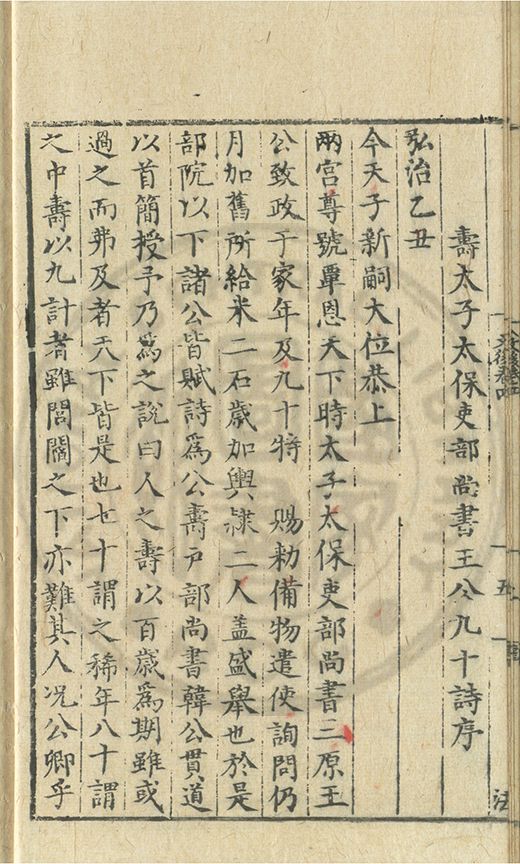 壽太子太保吏部尚書王公九十詩序
弘治乙丑
今天子新嗣大位恭上
兩宮尊號覃恩天下時太子太保吏部尚書三原王
公致政于家年及九十特　賜勑備物遣使詢問仍
月加舊所給米二石歲加輿隸二人盖盛舉也於是
部院以下諸公皆賦詩爲公壽户部尚書韓公貫道
以首簡授予乃爲之説曰人之壽以百歲爲期雖或
過之而弗及者天下皆是也七十謂之稀年八十謂
之中壽以九計者雖閭閻之下亦難其人况公卿乎